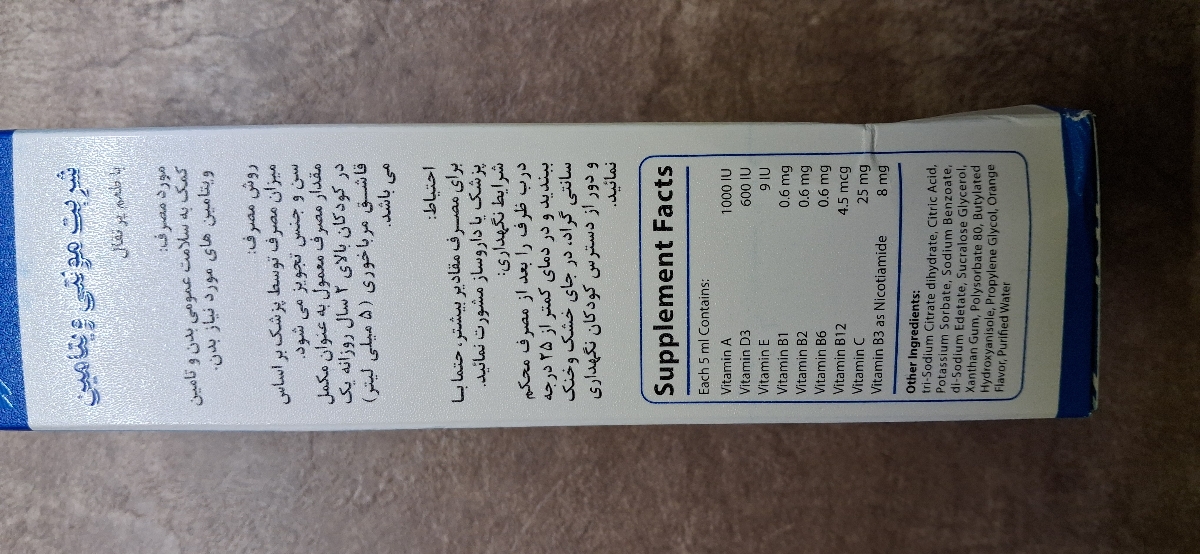 شربت مولتی ویتامین
با طعم پرتقال
مورد مصرف:
کمک به سلامت عمومی بدن و تامین
ویتامین های مورد نیاز بدن.
روش مصرف:
میزان مصرف توسط پزشک بر اساس
سن و جنس تجویز می شود.
مقدار مصرف معمول به عنوان مکمل
در کودکان بالای ۲ سال روزانه یک
قاشق مرباخوری (۵ میلی لیتر)
می باشد.
احتیاط:
برای مصرف مقادیر بیشتر، حتما با
پزشک یا داروساز مشورت نمائید.
شرایط نگهداری:
درب ظرف را بعد از مصرف محکم
ببندید و در دمای کمتر از ۲۵ درجه
سانتی گراد، در جای خشک وخنک
و دور از دسترس کودکان نگهداری
نمائید.
Supplement Facts
Each 5 ml Contains:
Vitamin A 1000 IU
Vitamin D3 600 IU
Vitamin E 9 IU
Vitamin B1 0.6 mg
Vitamin B2 0.6 mg
Vitamin B6 0.6 mg
Vitamin B12 4.5 mcg
Vitamin C 25 mg
Vitamin B3 as Nicotiamide 8 mg
Other Ingredients:
tri-Sodium Citrate dihydrate, Citric Acid,
Potassium Sorbate, Sodium Benzoate,
di-Sodium Edetate, Sucralose Glycerol,
Xanthan Gum, Polysorbate 80, Butylated
Hydroxyanisole, Propylene Glycol, Orange
Flavor, Purified Water